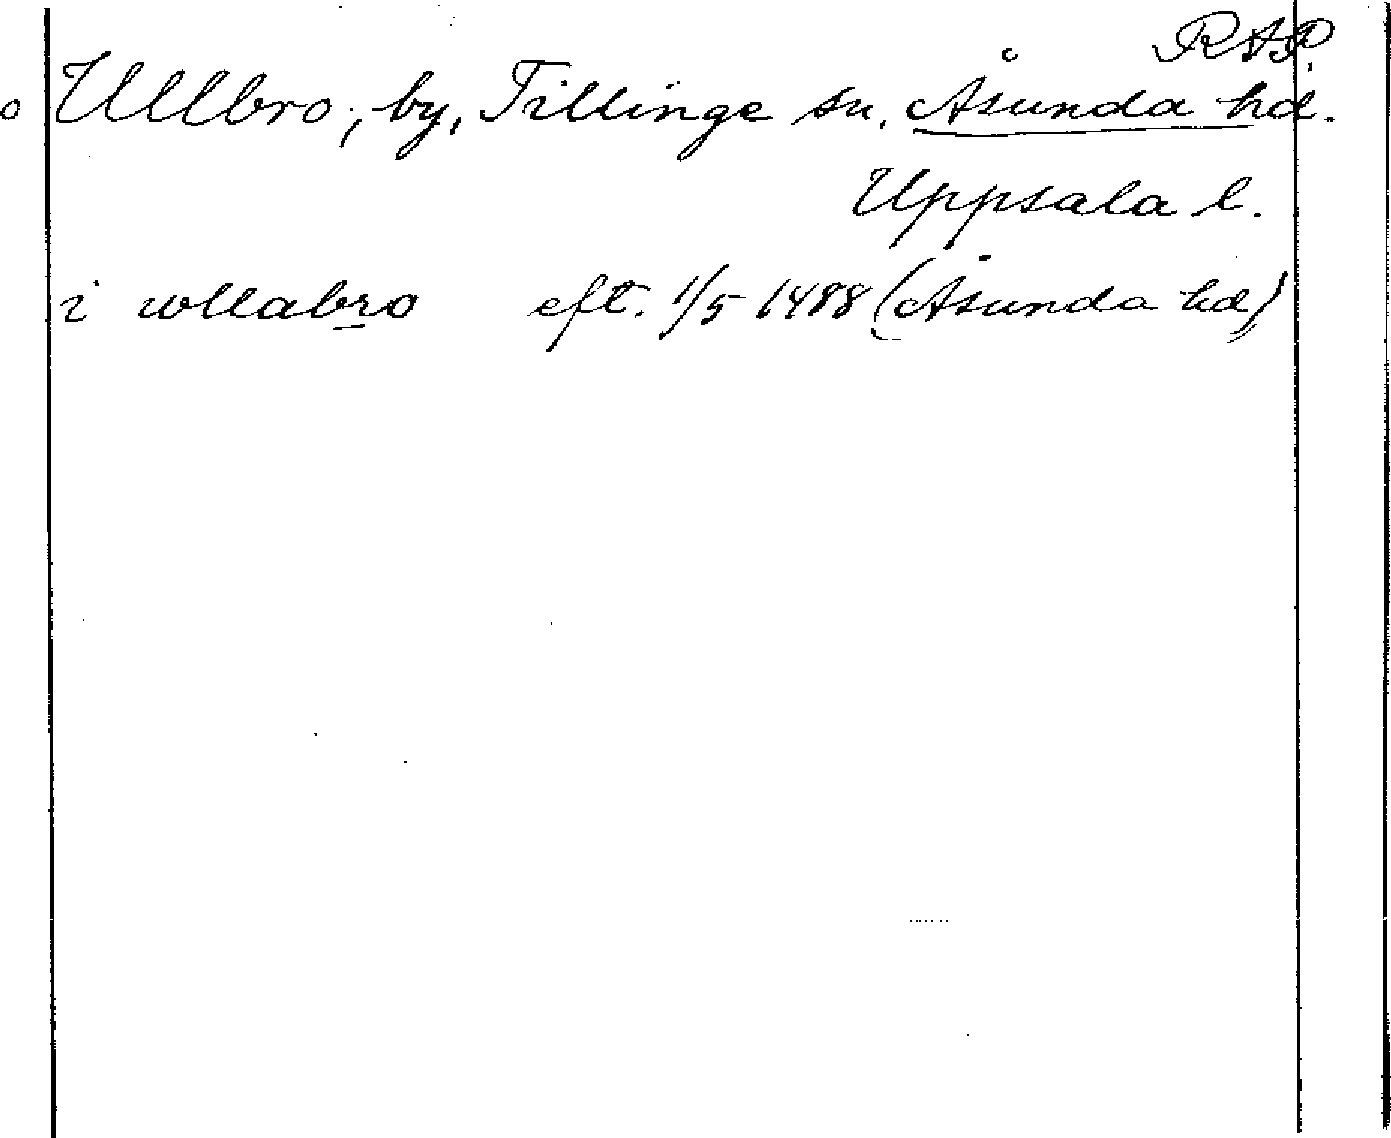 RAP.
o Ullbro, by, Tillinge sn, Åsunda hd.
Uppsala l.
i wllabro eft. 1/5 1488 (Åsunda hd)